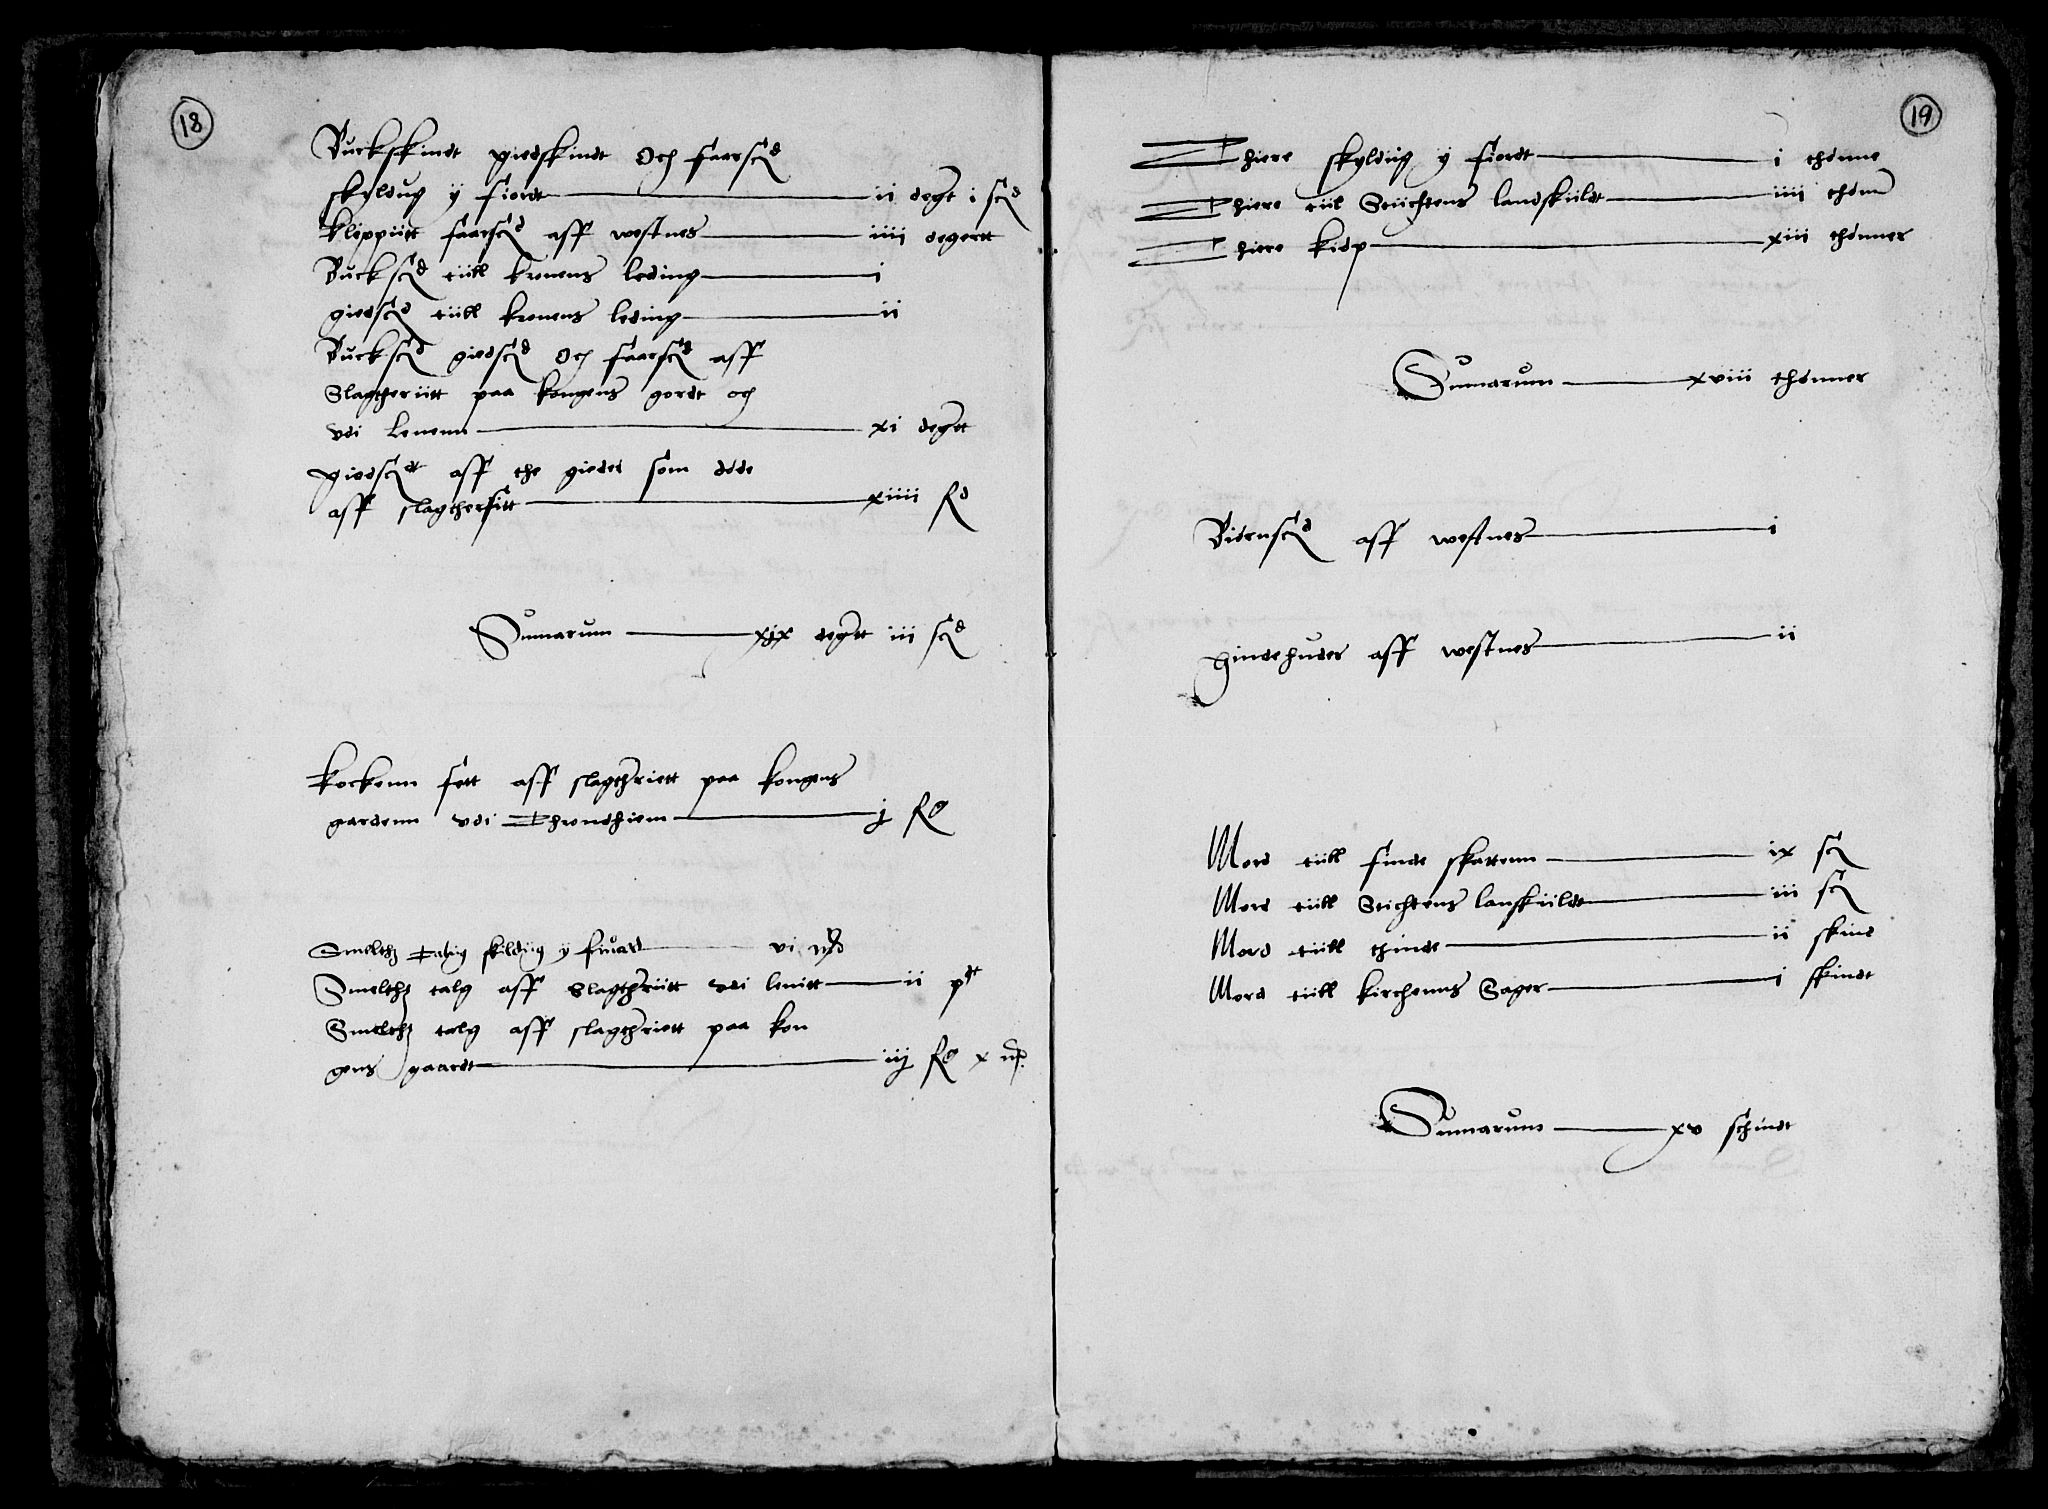 18
Buckskindt giedskindt Och faarskd
skyldug y fiordt ii degt i skd
klippiitt faarskd aff westnes iiii degertt
Buckskd tiill kronens leding i
giedskd tiill kronens leding ii
Buckskd giedskd Och faarskd aff
Slagtheriitt paa kongens gordt och
vdi Lenenn xi degtt
giedskdt aff the gieder som døde
aff slagtheriitt xiiii
Summarum xix degtt iii skd
kockenn fett aff slagthriett paa kongens
gardenn vdi Throndhiem j
Smelth talig skildiig y fiuard vi
Smelth talg aff Slagthriitt vdi lenitt ii pdt
Smelth talg aff slagthriett paa kon
gens gaardt iij x
19
Thiere skyldug y fiordt i thønne
Thiere tiil Stiichtens landskiildt iiii thønn
Thiere kiøp xiii thønner
Summarum xviii thønner
Biørnskd aff westnes i
hindehuder aff westnes ii
Mord tiill finde skattenn ix sk
Mord tiill Stichtens lanskiildt iii sk
Mord tiill thinde ii skind
Mord tiill kirchenns Sager i skindt
Summarum xv schindt